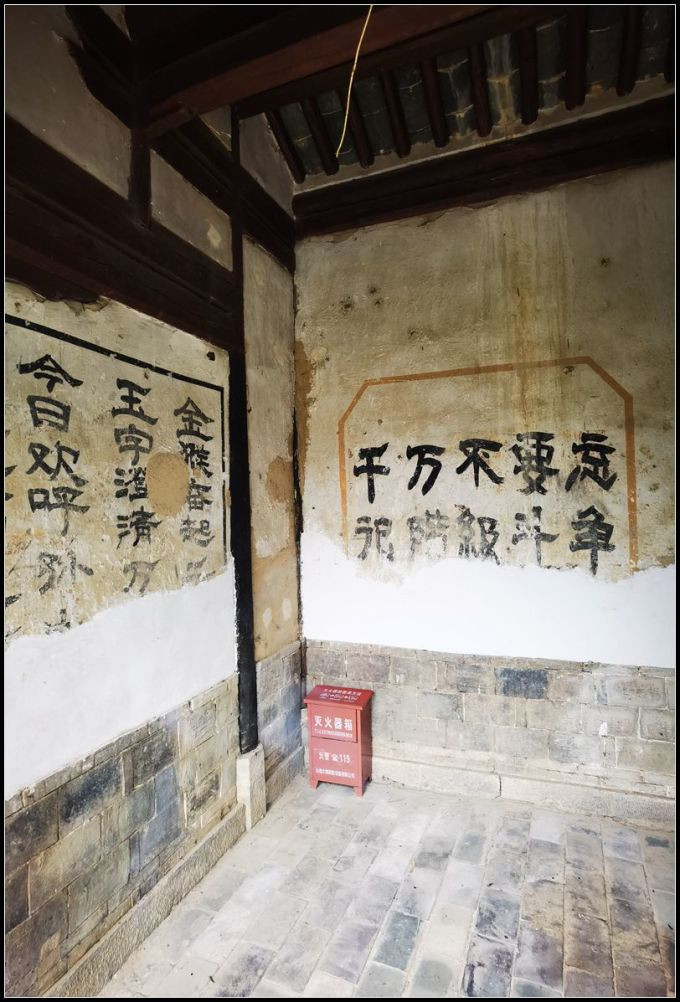 金猴奋起
玉宇澄清万
今日欢呼孙
千万不要忘
记阶级斗争
灭火器箱
火警 119